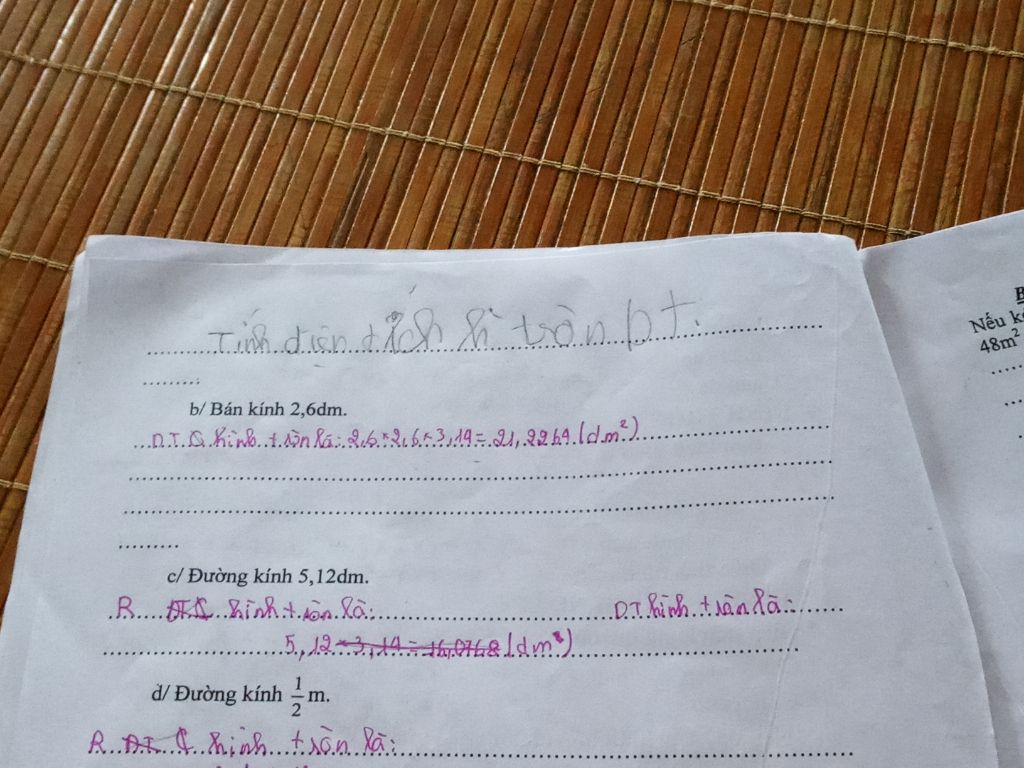 Tính diện tích hì tròn bt.
b/ Bán kính 2,6dm.
D.T.C hình tròn là: 2,6 × 2,6 × 3,14 = 21,2264 (dm²)
c/ Đường kính 5,12dm.
R DTC hình tròn là: DT hình tròn là:
5,12 × 3,14 = 16,0768 (dm²)
d/ Đường kính 1/2 m.
R DT C hình tròn là:
Nếu
48m²